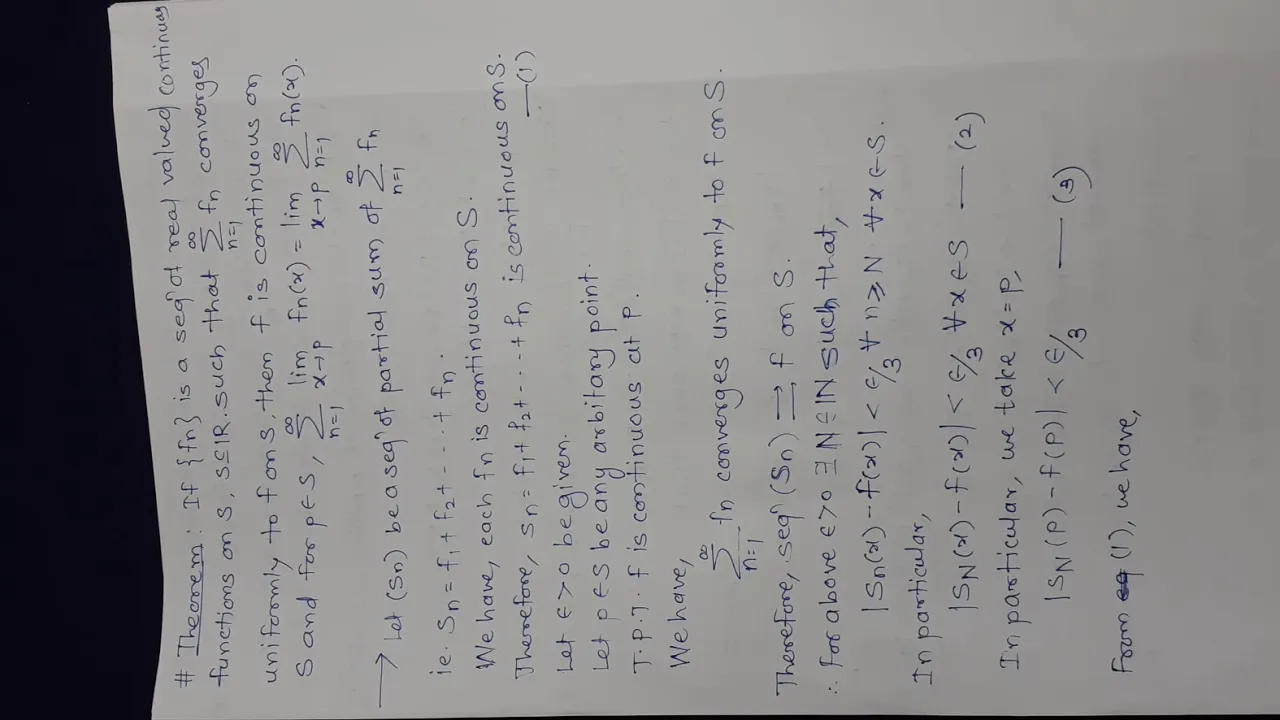 # Theorem: If {fn} is a seqn of real valued continuous
functions on S, S⊆IR. such that ∑_{n=1}^{∞} fn converges
uniformly to f on S, then f is continuous on
S and for p∈S, ∑_{n=1}^{∞} lim_{x→p} fn(x) = lim_{x→p} ∑_{n=1}^{∞} fn(x).
→ Let (Sn) be a seqn of partial sum of ∑_{n=1}^{∞} fn
ie. Sn = f1 + f2 + ---- + fn.
We have, each fn is continuous on S.
Therefore, Sn = f1 + f2 + ---- + fn is continuous on S.
—(1)
Let ϵ>0 be given.
Let p∈S be any arbitrary point.
T.P.T. f is continuous at P.
We have,
∑_{n=1}^{∞} fn converges uniformly to f on S.
Therefore, seqn (Sn) ⇉ f on S.
∴ for above ϵ>0 ∃ N∈IN such that,
|Sn(x) - f(x)| < ϵ/3 ∀ n ≥ N ∀ x ∈ S.
In particular,
|SN(x) - f(x)| < ϵ/3 ∀ x ∈ S — (2)
In particular, we take x = P,
|SN(P) - f(P)| < ϵ/3 — (3)
From (1), we have,